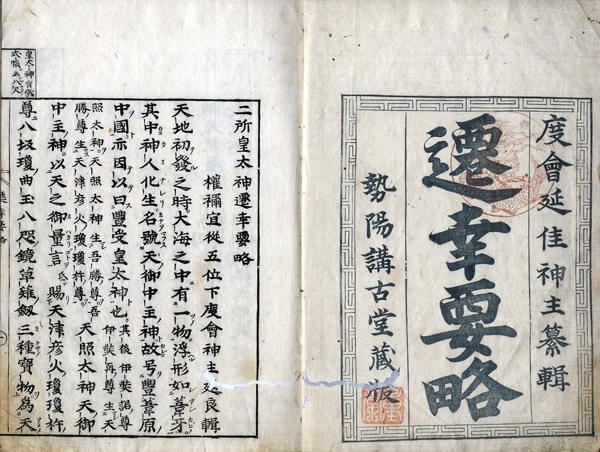 度會延佳神主纂輯
遷幸要略
勢陽講古堂藏版
皇太神宮儀
式帳五八次
二所皇太神遷幸要略
權禰宜從五位下度會神主延良輯
天地初發之時大海之中有一物浮形如葦牙
其中神人化生名號天御中主神故号豐葦原
中國亦因以曰豐受皇太神也其後伊弉諾尊伊弉冉尊生天
照太神天照太神生吾勝尊吾勝尊生天津彦火瓊瓊杵尊天照太神天御
中主神以天之御量言賜天津彦火瓊瓊杵
尊八坂瓊曲玉八咫鏡草薙劔三種寳物為天